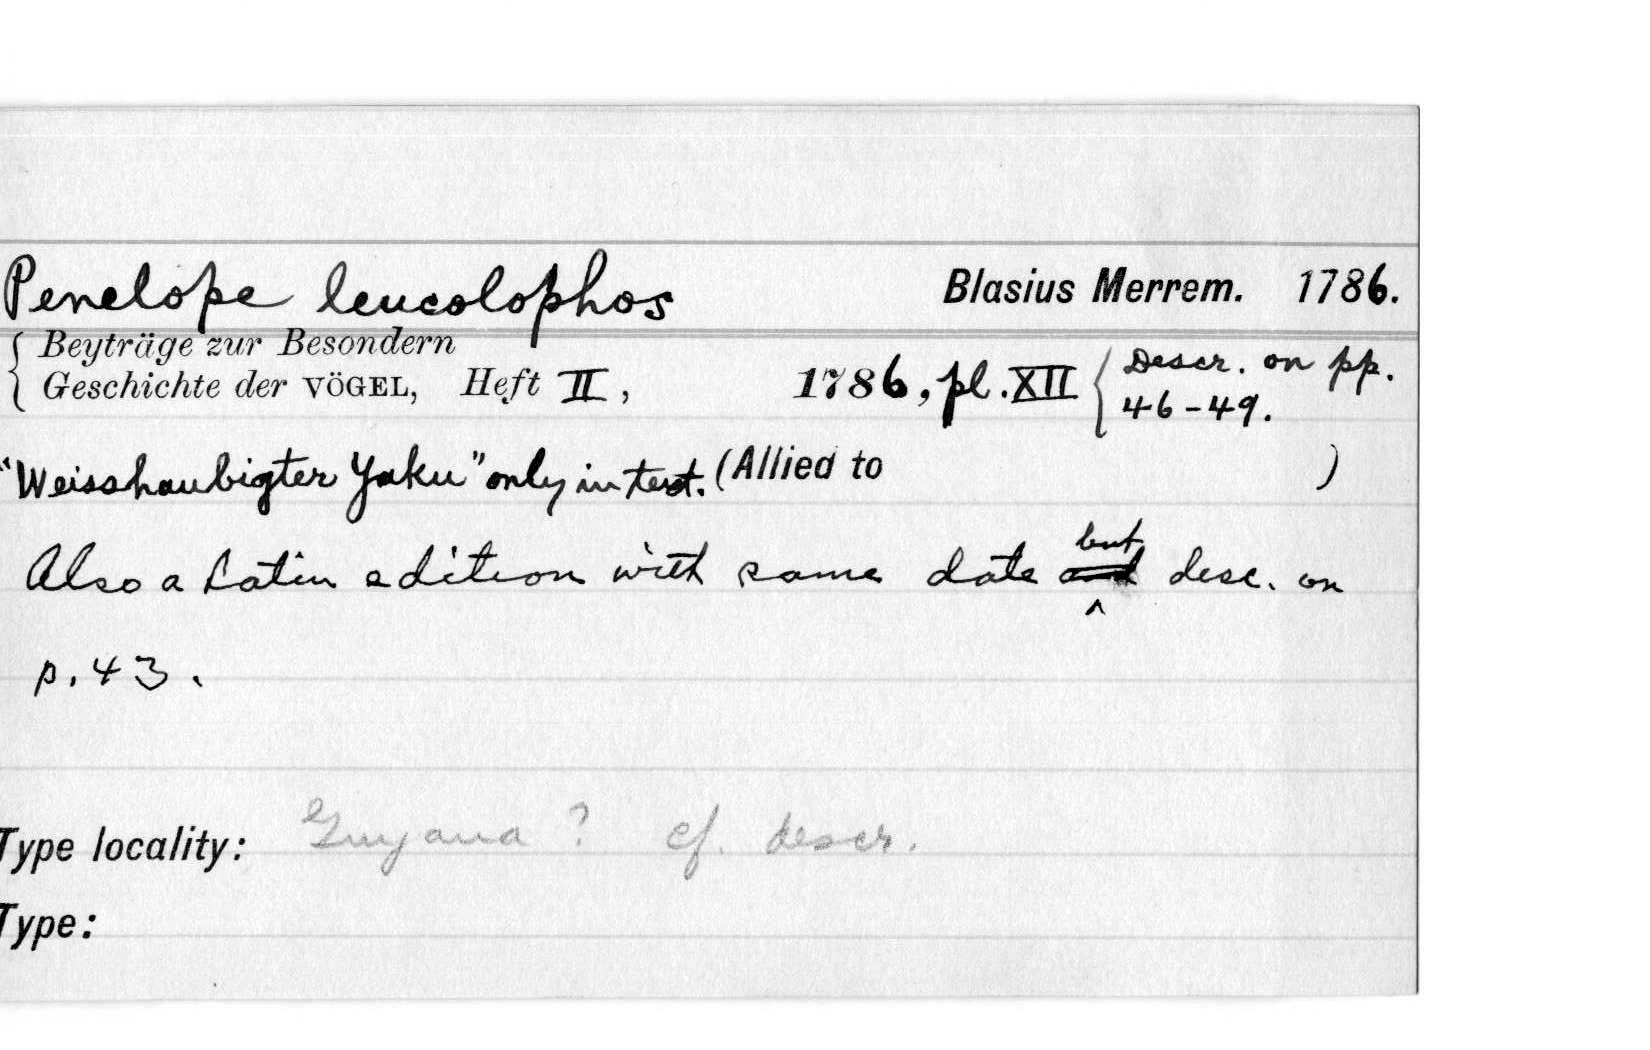 Penelope leucolophos Blasius Merrem. 1786.
{ Beyträge zur Besondern
Geschichte der VÖGEL, Heft II, 1786, pl. XII { Descr. on pp.
46-49.
"Weisshaubigter Yaku" only in text. (Allied to )
Also a Latin edition with same date but and desc. on
p. 43.
Type locality: Guyana ? cf. descr.
Type: